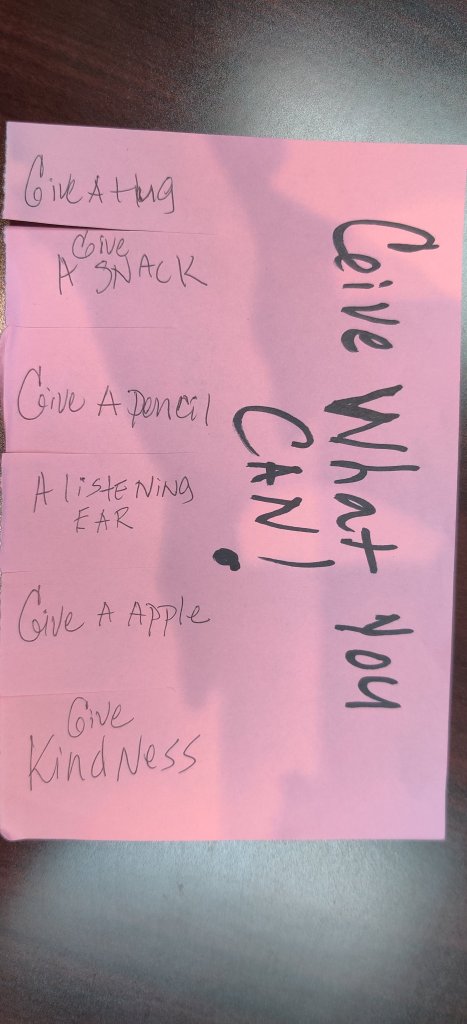 Give What you
CAN!
Give A Hug
Give
A SNACK
Give A pencil
A listENiNG
EAR
Give A Apple
Give
KindNess